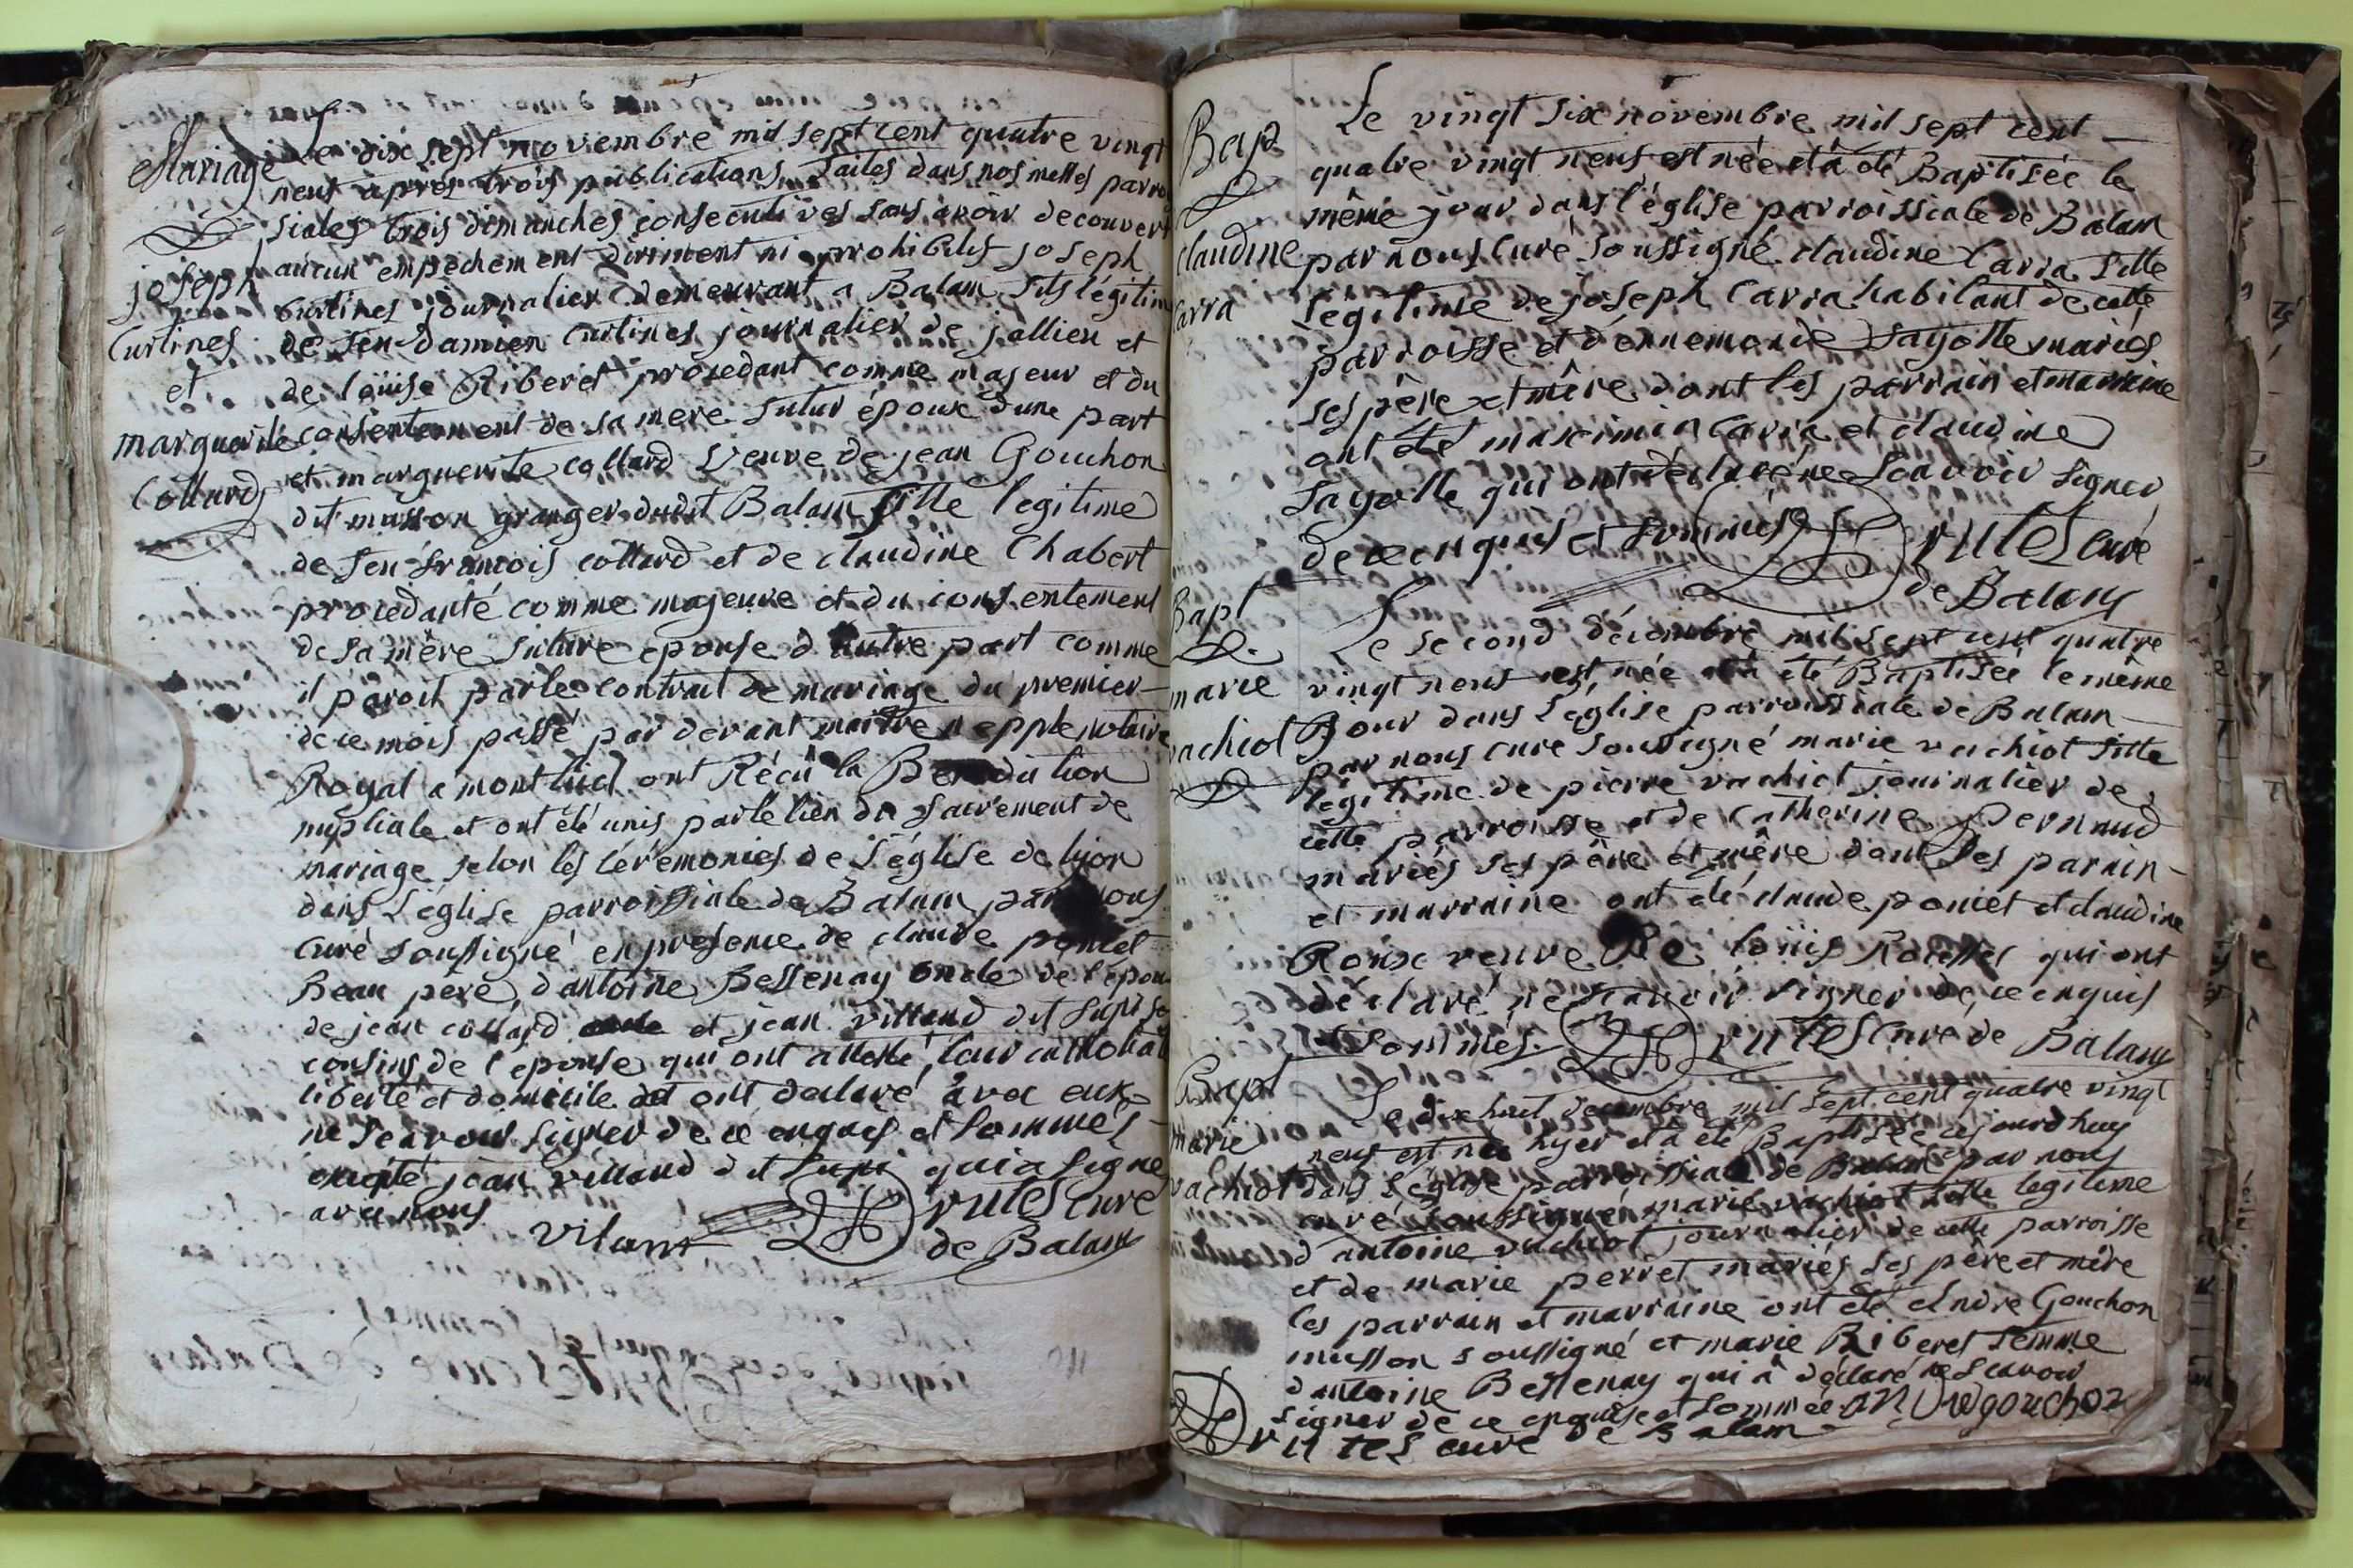 Mariage
joseph
Curtines
et
marguerite
Collard
Le dix sept novembre mil sept cent quatre vingt
neuf après trois publications faites dans nos messes parroi
siales trois dimanches consecutives sans avoir decouvert
aucun empechement dirimant ni prohibitif joseph
Curtines journalier demeurant a Balan fils légitime
de feu Damien Curtines journalier de jallieu et
de loüise Riberet procedant comme majeur et du
consentement de sa mere futur époux d'une part
et marguerite collard veuve de jean Gouchon
dit musson granger dudit Balan fille legitime
de feu francois collard et de claudine Chabert
procedante comme majeure et du consentement
de sa mère future epouse d'autre part comme
il paroit par le contrat de mariage du premier
de ce mois passé par devant maitre nepple notaire
Royal a montluel ont Récü la Benediction
nuptiale et ont été unis par le lien du sacrement de
mariage selon les cérémonies de l'église de lyon
dans L'église parroissiale de Balan par nous
Curé soussigné en presence de claude poncet
Beau pere, d'antoine Bessenay oncle de l'epou
de jean collard et jean villand dit lupi
cousins de l'epouse qui ont attesté leur catholicité
liberté et domicile et ont declaré avec eux
ne scavoir signer de ce enquis et sommés
excepté jean villand dit lupi qui a signé
avec nous
vilant Drutes curé
de Balan
Bap
claudine
Carra
Le vingt six novembre mil sept cent
quatre vingt neuf est née et a été Baptisée le
même jour dans l'église parroissiale de Balan
par nous Curé soussigné claudine Carra fille
légitime de joseph Carra habitant de cette
parroisse et d'ennemonde Sayotte mariés
ses père et mère dont les parrain et marraine
ont été maximin Carra et claudine
Sayotte qui ont déclaré ne scavoir signer
de ce enquis et sommés Drutes curé
de Balan
Bapt
marie
vachiot
Le second décembre mil sept cent quatre
vingt neuf est née et a été Baptisée le même
jour dans L'église parroissiale de Balan
par nous curé soussigné marie vachiot fille
légitime de pierre vachiot journalier de
cette parroisse et de catherine pernaud
mariés ses père et mère dont les parrain
et marraine ont été claude poncet et claudine
Roux veuve De loüis Rousset qui ont
déclaré ne scavoir signer de ce enquis
et sommés. Drutes Curé de Balan
Bapt
marie
vachiot
Le dix huit decembre mil sept cent quatre vingt
neuf est née hyer et a été Baptisée cejourdhuy
dans L'église parroissiale de Balan par nous
curé soussigné marie vachiot fille legitime
d'antoine vachiot journalier de cette parroisse
et de marie perret mariés ses père et mère
les parrain et marraine ont été andre Gouchon
musson soussigné et marie Riberet femme
d'antoine Bessenay qui a déclaré ne scavoir
signer de ce enquise et sommée andregouchon
Drutes curé de Balan